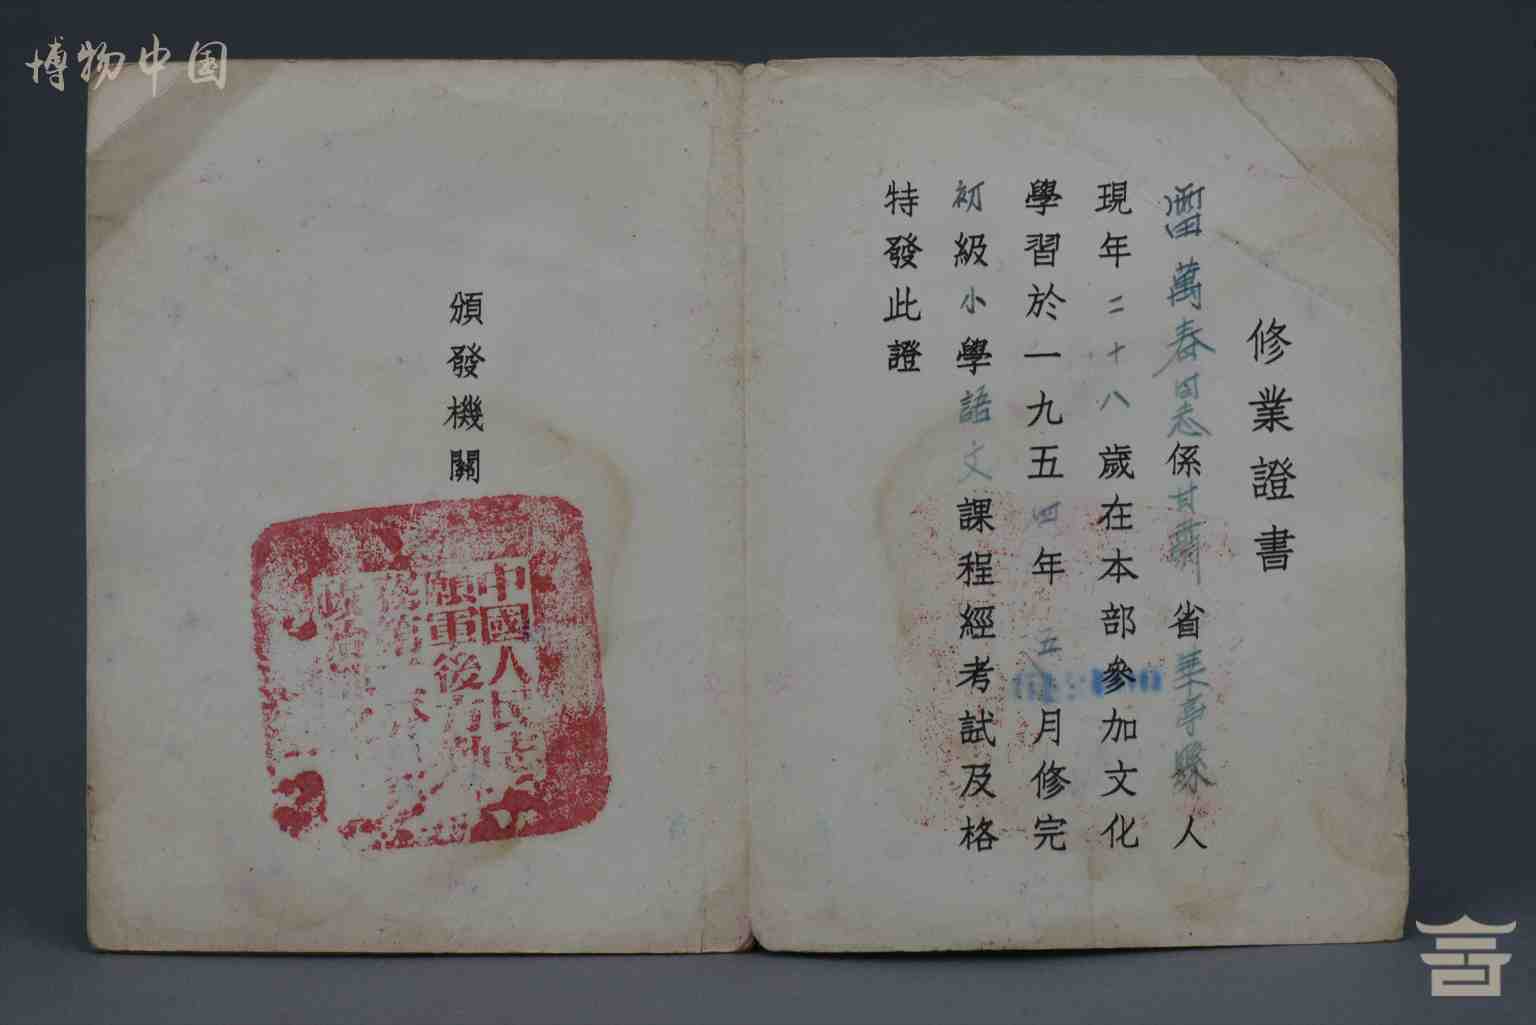 博物中国
修業證書
雷萬春同志係甘肅省華亭縣人
現年二十八歲在本部參加文化
學習於一九五四年五月修完
初級小學語文課程經考試及格
特發此證
頒發機關
中國人民志
願軍後方勤
政治